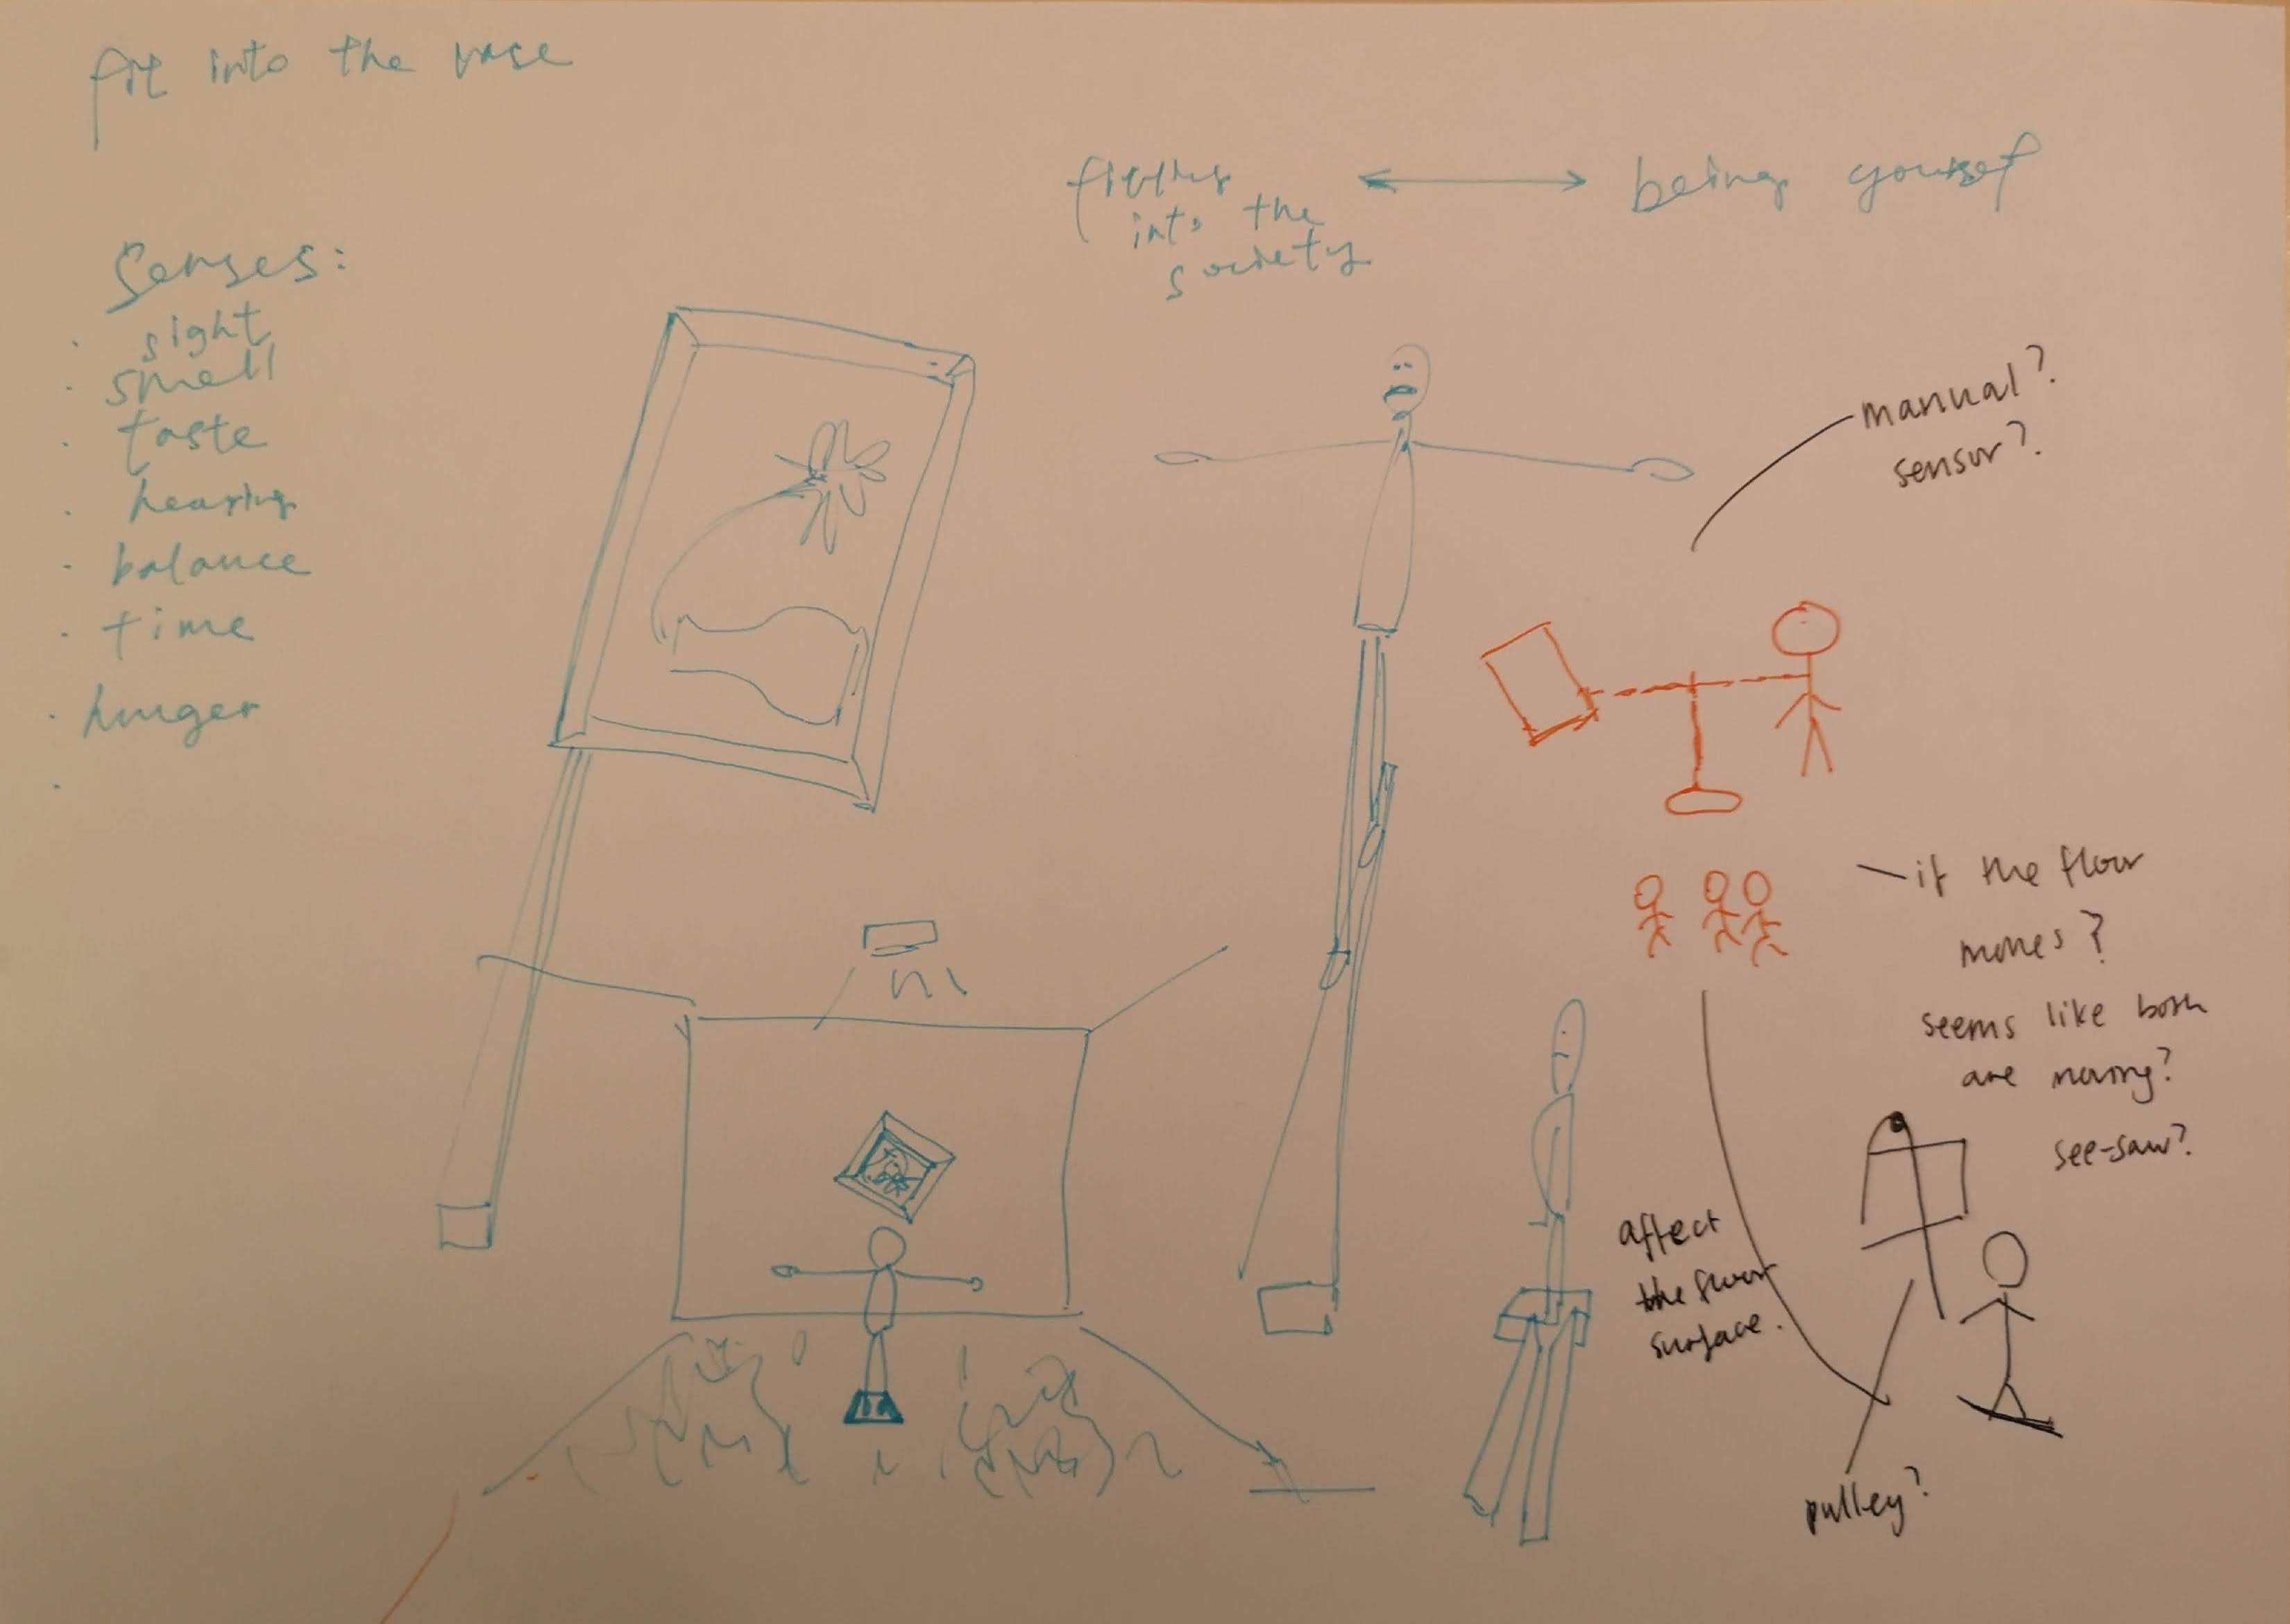 fit into the vase
fitting
into the
society
being yourself
Senses:
· sight
· smell
· taste
· hearing
· balance
· time
· hunger
·
manual?
sensor?
if the floor
moves?
seems like both
are moving?
see-saw?
affect
the floor
surface.
pulley?